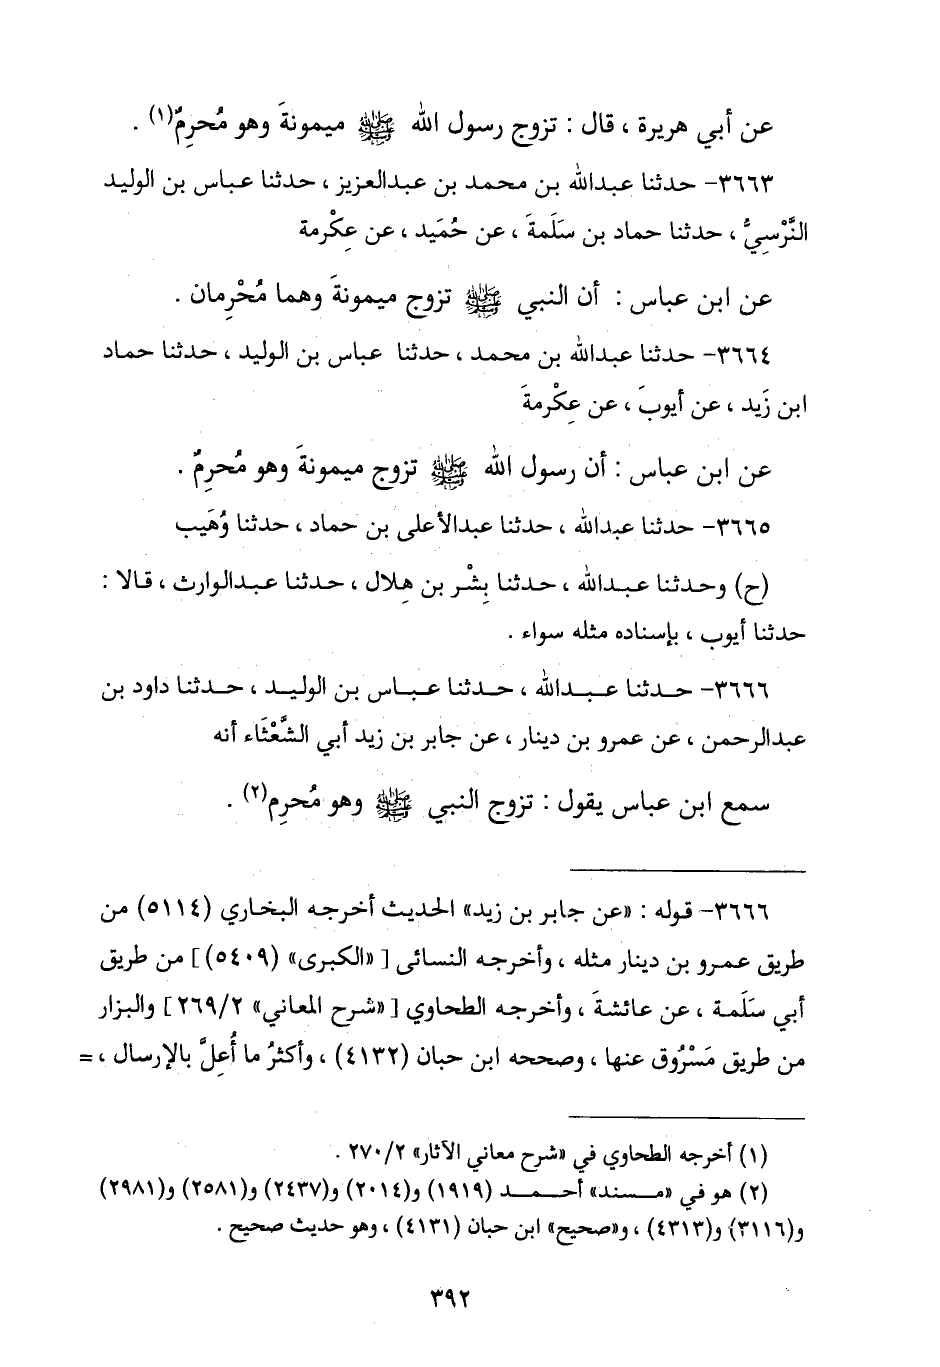 عن أبي هريرة ، قال : تزوج رسول الله ﷺ ميمونةَ وهو مُحرِمٌ(١) .
٣٦٦٣- حدثنا عبدالله بن محمد بن عبدالعزيز ، حدثنا عباس بن الوليد
النَّرْسِيُّ ، حدثنا حماد بن سَلَمةَ ، عن حُمَيد ، عن عِكْرمة
عن ابن عباس : أن النبي ﷺ تزوج ميمونةَ وهما مُحْرِمان .
٣٦٦٤- حدثنا عبدالله بن محمد ، حدثنا عباس بن الوليد ، حدثنا حماد
ابن زَيد ، عن أيوبَ ، عن عِكْرمةَ
عن ابن عباس : أن رسول الله ﷺ تزوج ميمونةَ وهو مُحرِمٌ .
٣٦٦٥- حدثنا عبدالله ، حدثنا عبدالأعلى بن حماد ، حدثنا وُهَيب
(ح) وحدثنا عبدالله ، حدثنا بِشْر بن هِلال ، حدثنا عبدالوارث ، قالا :
حدثنا أيوب ، بإسناده مثله سواء .
٣٦٦٦- حدثنا عبدالله ، حدثنا عباس بن الوليد ، حدثنا داود بن
عبدالرحمن ، عن عمرو بن دينار ، عن جابر بن زيد أبي الشَّعْثَاء أنه
سمع ابن عباس يقول : تزوج النبي ﷺ وهو مُحرِم(٢) .
٣٦٦٦- قوله : «عن جابر بن زيد» الحديث أخرجه البخاري (٥١١٤) من
طريق عمرو بن دينار مثله ، وأخرجه النسائى [«الكبرى» (٥٤٠٩)] من طريق
أبي سَلَمة ، عن عائشةَ ، وأخرجه الطحاوي [«شرح المعاني» ٢/ ٢٦٩] والبزار
من طريق مَسْرُوق عنها ، وصححه ابن حبان (٤١٣٢) ، وأكثرُ ما أُعِلَّ بالإرسال ، =
(١) أخرجه الطحاوي في «شرح معاني الآثار» ٢/ ٢٧٠ .
(٢) هو في «مسند» أحمد (١٩١٩) و(٢٠١٤) و(٢٤٣٧) و(٢٥٨١) و(٢٩٨١)
و(٣١١٦) و(٤٣١٣) ، و«صحيح» ابن حبان (٤١٣١) ، وهو حديث صحيح .
٣٩٢